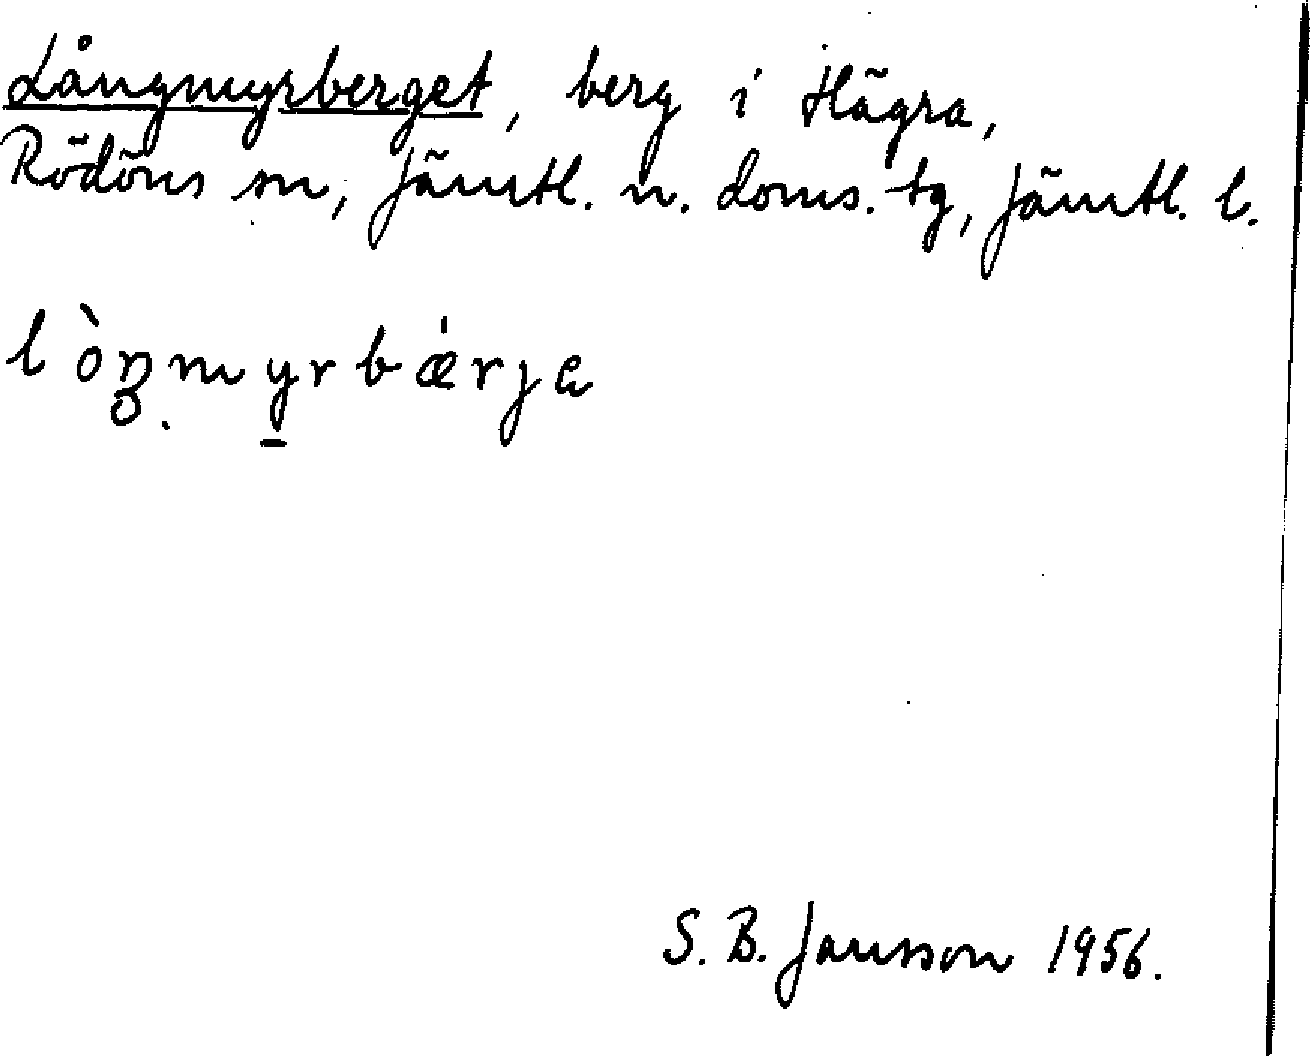 Långmyrberget, berg i Hägra,
Rödöns sn, Jämtl. n. doms. tg, Jämtl. l.
lòŋ̥.my̱rbǽrjа
S. B. Jansson 1956.